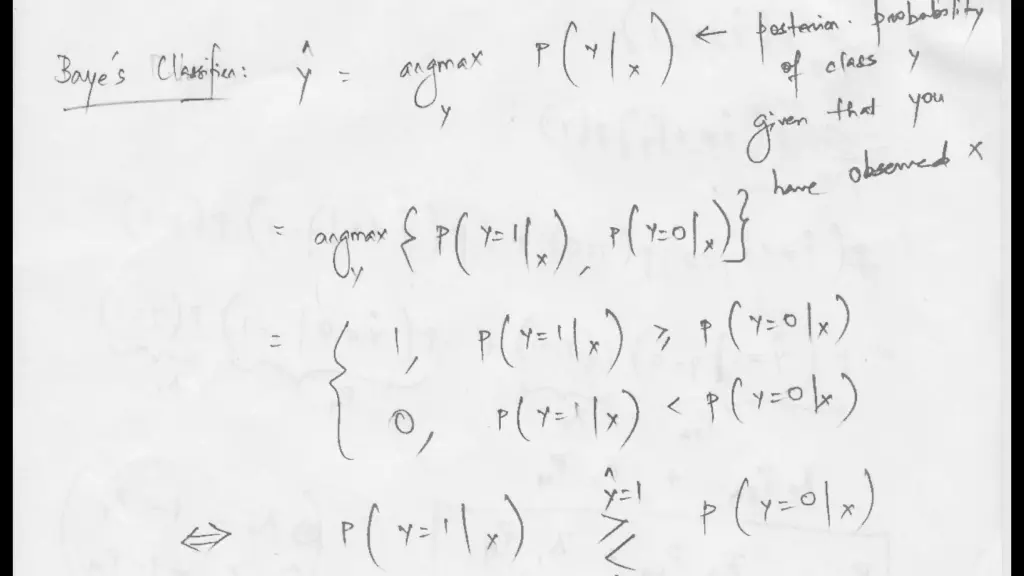 Baye's Classifier: ŷ = argmax_y P(y|x) ← posterior probability
of class y
given that you
have observed x
= argmax_y { P(y=1|x), P(y=0|x) }
= { 1, P(y=1|x) ⩾ P(y=0|x)
0, P(y=1|x) < P(y=0|x)
⇔ P(y=1|x) ≷ ŷ=1 P(y=0|x)